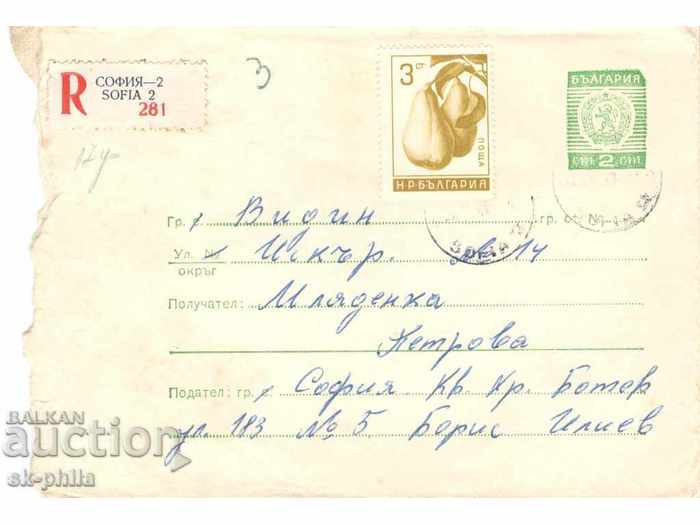 R
СОФИЯ—2
SOFIA 2
281
3
3 СТ
ПОЩА
НР БЪЛГАРИЯ
БЪЛГАРИЯ
2
Гр. Видин
Ул. № Искър. № 14
окръг
Получател: Младенка
Петрова
Подател: гр. София Кв. Хр. Ботев
ул. 183 № 5 Борис Илиев
BALKAN
auction
sk-phila